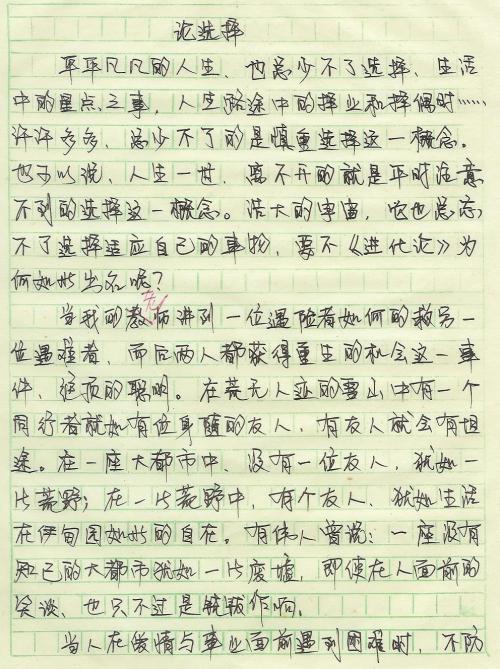 论选择
平平凡凡的人生，也总少不了选择，生活
中的星点之事，人生路途中的择业和择偶时……
许许多多，总少不了的是慎重选择这一概念。
也可以说，人生一世，离不开的就是平时注意
不到的选择这一概念。浩大的宇宙，它也总忘
不了选择适应自己的事物，要不《进化论》为
何如此出名呢？
当我的教师讲到一位遇险者如何的救另一
位遇难者，而后两人都获得重生的机会这一事
件，绝顶的聪明。在荒无人亚的雪山中有一个
同行者就如有位身随的友人，有友人就会有坦
途。在一座大都市中，没有一位友人，犹如一
片荒野；在一片荒野中，有个友人，犹如生活
在伊甸园如此的自在。有伟人曾说：一座没有
知已的大都市犹如一片废墟，即使在人面前的
笑谈，也只不过是铙钹作响。
当人在爱情与事业面前遇到困难时，不防